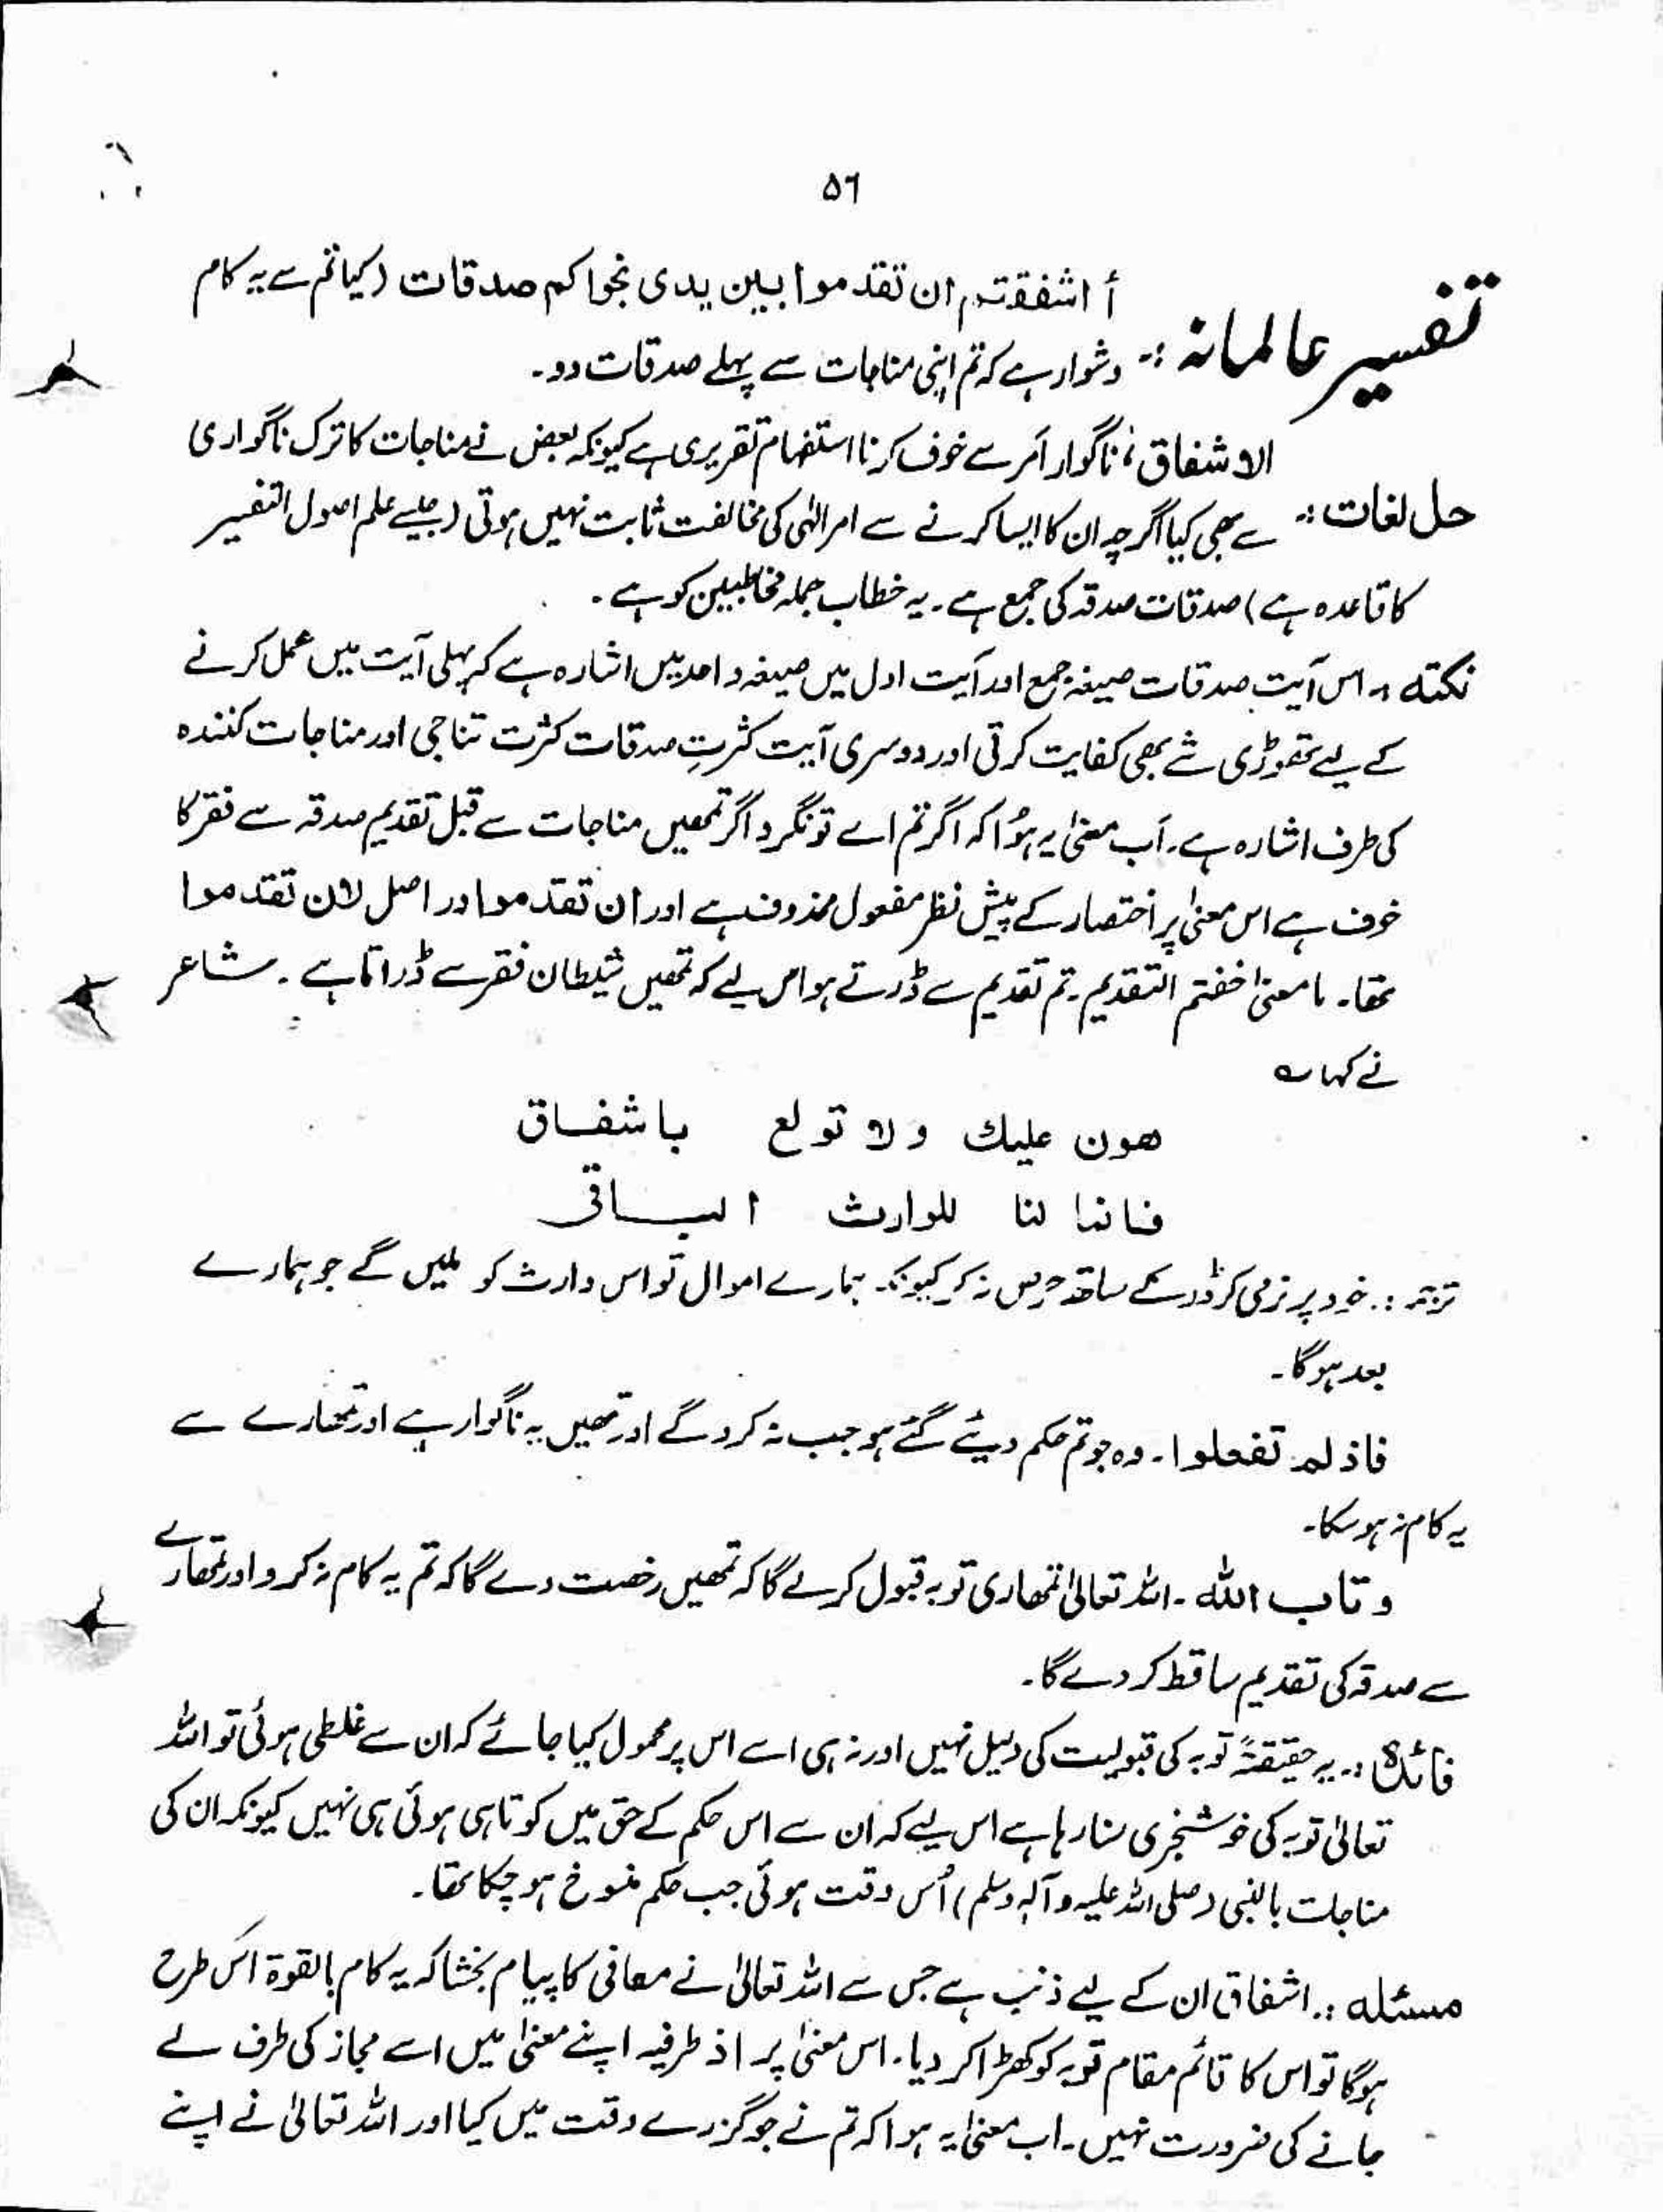 ۵۶
أ اشفقتم ان تقدموا بین یدی نجواکم صدقات (کیا تم سے یہ کام
تفسیر عالمانہ :۔ دشوار ہے کہ تم اپنی مناجات سے پہلے صدقات دو۔
الاشفاق، ناگوار اَمر سے خوف کرنا استفہام تقریری ہے کیونکہ بعض نے مناجات کا ترک ناگواری
حل لغات :۔ سے بھی کیا اگرچہ ان کا ایسا کرنے سے امر الٰہی کی مخالفت ثابت نہیں ہوتی (جیسے علم اصول التفسیر
کا قاعدہ ہے) صدقات صدقہ کی جمع ہے۔ یہ خطاب جملہ مخاطبین کو ہے۔
نکتہ :۔ اس آیت صدقات صیغہ جمع اور آیت اول میں صیغہ واحد میں اشارہ ہے کہ پہلی آیت میں عمل کرنے
کے لیے تھوڑی شے بھی کفایت کرتی اور دوسری آیت کثرتِ صدقات کثرت تناجی اور مناجات کنندہ
کی طرف اشارہ ہے۔ اَب معنیٰ یہ ہُوا کہ اگر تم اے تونگرو اگر تمھیں مناجات سے قبل تقدیم صدقہ سے فقر کا
خوف ہے اس معنیٰ پر اختصار کے پیش نظر مفعول محذوف ہے اور ان تقدموا در اصل لان تقدموا
تھا۔ بامعنیٰ اخفتم التقدیم۔ تم تقدیم سے ڈرتے ہو اس لیے کہ تمھیں شیطان فقر سے ڈراتا ہے۔ شاعر
نے کہا ؎
ھون علیك ولا تولع باشفاق
فانما لنا للوارث الباقی
ترجمہ :۔ خود پر نرمی کر ڈور کے ساتھ حرص نہ کر کیونکہ ہمارے اموال تو اس وارث کو ملیں گے جو ہمارے
بعد ہوگا۔
فاذلم تفعلوا۔ وہ جو تم حکم دیئے گئے ہو جب نہ کرو گے اور تمھیں یہ ناگوار ہے اور تمھارے سے
یہ کام نہ ہو سکا۔
وتاب اللہ ۔ اللہ تعالیٰ تمھاری توبہ قبول کرلے گا کہ تمھیں رخصت دے گا کہ تم یہ کام نہ کرو اور تمھارے
سے صدقہ کی تقدیم ساقط کر دے گا۔
فائدہ :۔ یہ حقیقۃً توبہ کی قبولیت کی دلیل نہیں اور نہ ہی اسے اس پر محمول کیا جائے کہ ان سے غلطی ہوئی تو اللہ
تعالیٰ توبہ کی خوشخبری سنا رہا ہے اس لیے کہ ان سے اس حکم کے حق میں کوتاہی ہوئی ہی نہیں کیونکہ ان کی
مناجات بالنبی (صلی اللہ علیہ وآلہٖ وسلم) اُس وقت ہوئی جب حکم منسوخ ہو چکا تھا۔
مسئلہ :۔ اشفاق ان کے لیے ذنب ہے جس سے اللہ تعالیٰ نے معافی کا پیام بخشا کہ یہ کام بالقوۃ اس طرح
ہوگا تو اس کا قائم مقام توبہ کو کھڑا کر دیا۔ اس معنیٰ پر اذ ظرفیہ اپنے معنیٰ میں اسے مجاز کی طرف لے
جانے کی ضرورت نہیں۔ اب معنیٰ یہ ہوا کہ تم نے جو گزرے وقت میں کیا اور اللہ تعالیٰ نے اپنے